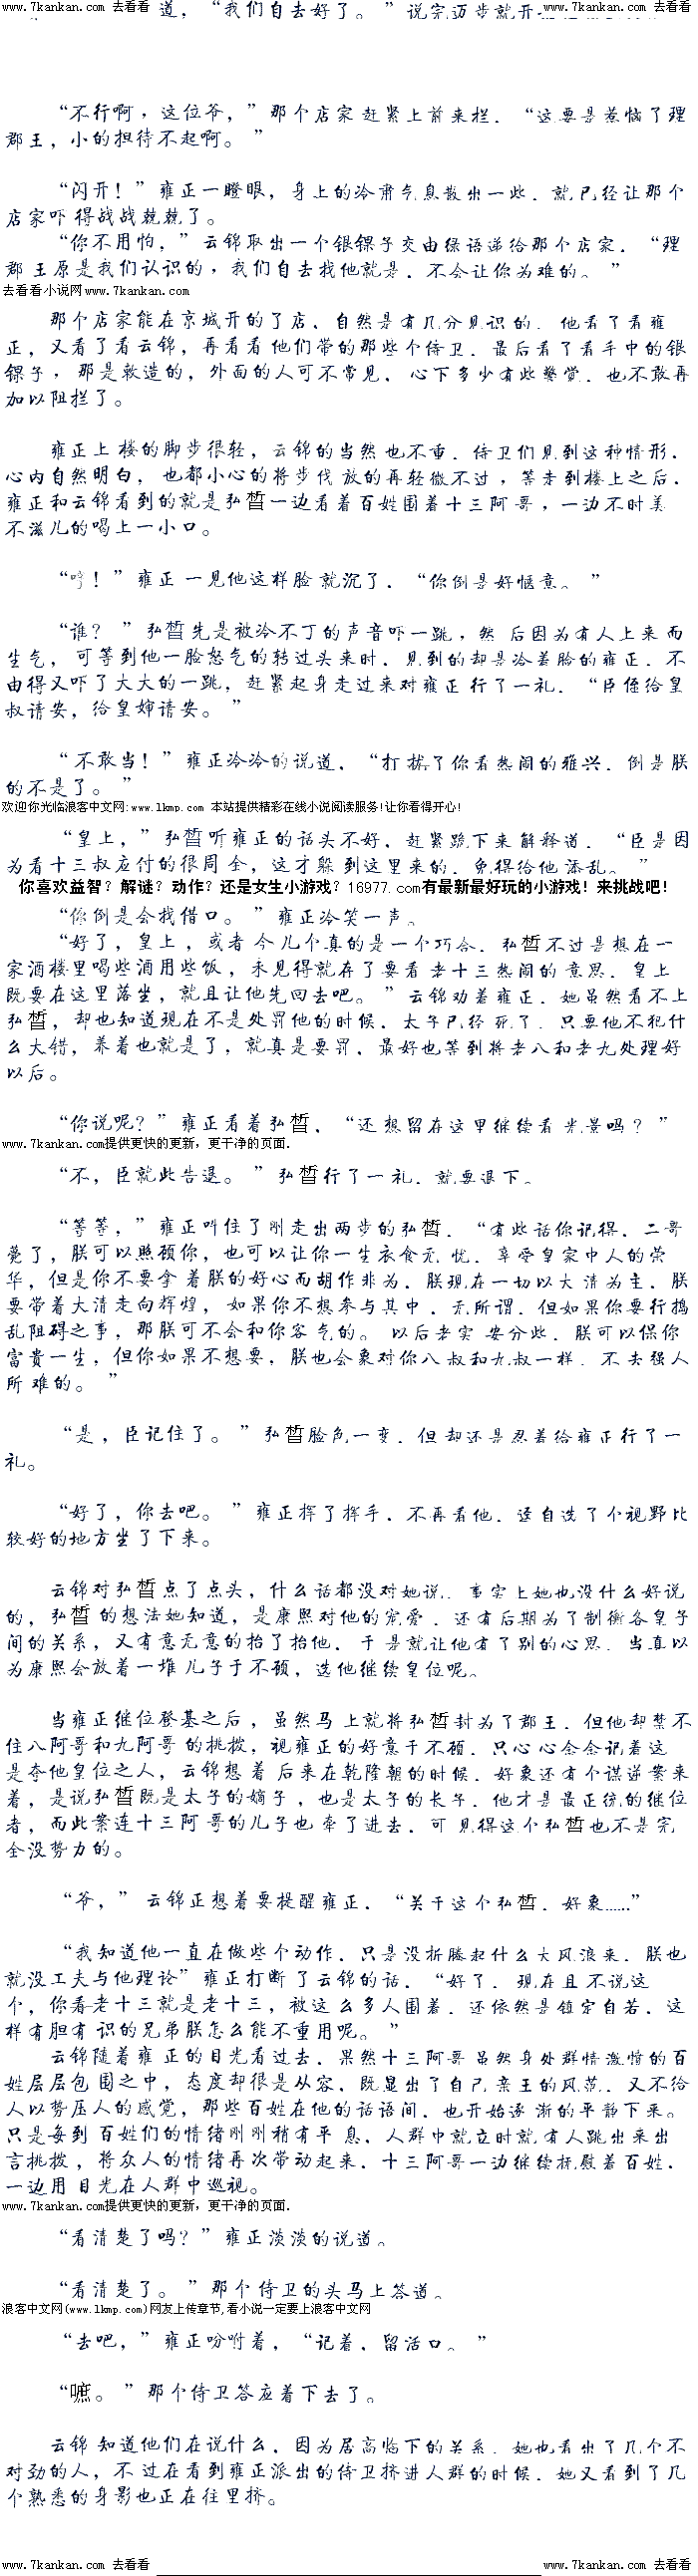 www.7kankan.com 去看看 道，“我们自去好了。”说完迈步就开 www.7kankan.com 去看看
“不行啊，这位爷，”那个店家赶紧上前来拦，“这要是惹恼了理
郡王，小的担待不起啊。”
“闪开！”雍正一瞪眼，身上的冷肃气息散出一些，就已经让那个
店家吓得战战兢兢了。
“你不用怕，”云锦取出一个银锞子交由绿语递给那个店家，“理
郡王原是我们认识的，我们自去找他就是，不会让你为难的。”
去看看小说网www.7kankan.com
那个店家能在京城开的了店，自然是有几分见识的，他看了看雍
正，又看了看云锦，再看看他们带的那些个侍卫，最后看了看手中的银
锞子，那是敕造的，外面的人可不常见，心下多少有些警觉，也不敢再
加以阻拦了。
雍正上楼的脚步很轻，云锦的当然也不重，侍卫们见到这种情形，
心内自然明白，也都小心的将步伐放的再轻微不过，等走到楼上之后，
雍正和云锦看到的就是弘皙一边看着百姓围着十三阿哥，一边不时美
不滋儿的喝上一小口。
“哼！”雍正一见他这样脸就沉了，“你倒是好惬意。”
“谁？”弘皙先是被冷不丁的声音吓一跳，然后因为有人上来而
生气，可等到他一脸怒气的转过头来时，见到的却是冷着脸的雍正，不
由得又吓了大大的一跳，赶紧起身走过来对雍正行了一礼，“臣侄给皇
叔请安，给皇婶请安。”
“不敢当！”雍正冷冷的说道，“打扰了你看热闹的雅兴，倒是朕
的不是了。”
欢迎你光临浪客中文网:www.lkmp.com 本站提供精彩在线小说阅读服务!让你看得开心!
“皇上，”弘皙听雍正的话头不好，赶紧跪下来解释道，“臣是因
为看十三叔应付的很周全，这才躲到这里来的，免得给他添乱。”
你喜欢益智？解谜？动作？还是女生小游戏？16977.com有最新最好玩的小游戏！来挑战吧！
“你倒是会找借口。”雍正冷笑一声。
“好了，皇上，或者今儿个真的是一个巧合，弘皙不过是想在一
家酒楼里喝些酒用些饭，未见得就存了要看老十三热闹的意思，皇上
既要在这里落坐，就且让他先回去吧。”云锦劝着雍正，她虽然看不上
弘皙，却也知道现在不是处罚他的时候，太子已经死了，只要他不犯什
么大错，养着也就是了，就真是要罚，最好也等到将老八和老九处理好
以后。
“你说呢？”雍正看着弘皙，“还想留在这里继续看光景吗？”
www.7kankan.com提供更快的更新，更干净的页面.
“不，臣就此告退。”弘皙行了一礼，就要退下。
“等等，”雍正叫住了刚走出两步的弘皙，“有些话你记得，二哥
薨了，朕可以照顾你，也可以让你一生衣食无忧，享受皇家中人的荣
华，但是你不要拿着朕的好心而胡作非为，朕现在一切以大清为主，朕
要带着大清走向辉煌，如果你不想参与其中，无所谓，但如果你要行捣
乱阻碍之事，那朕可不会和你客气的。以后老实安分些，朕可以保你
富贵一生，但你如果不想要，朕也会象对你八叔和九叔一样，不去强人
所难的。”
“是，臣记住了。”弘皙脸色一变，但却还是忍着给雍正行了一
礼。
“好了，你去吧。”雍正挥了挥手，不再看他，迳自选了个视野比
较好的地方坐了下来。
云锦对弘皙点了点头，什么话都没对她说，事实上她也没什么好说
的，弘皙的想法她知道，是康熙对他的宠爱，还有后期为了制衡各皇子
间的关系，又有意无意的抬了抬他，于是就让他有了别的心思，当真以
为康熙会放着一堆儿子于不顾，选他继续皇位呢。
当雍正继位登基之后，虽然马上就将弘皙封为了郡王，但他却禁不
住八阿哥和九阿哥的挑拨，视雍正的好意于不顾，只心心念念记着这
是夺他皇位之人，云锦想着后来在乾隆朝的时候，好象还有个谋逆案来
着，是说弘皙既是太子的嫡子，也是太子的长子，他才是最正统的继位
者，而此案连十三阿哥的儿子也牵了进去，可见得这个弘皙也不是完
全没势力的。
“爷，”云锦正想着要提醒雍正，“关于这个弘皙，好象……”
“我知道他一直在做些个动作，只是没折腾起什么大风浪来，朕也
就没工夫与他理论”雍正打断了云锦的话，“好了，现在且不说这
个，你看老十三就是老十三，被这么多人围着，还依然是镇定自若，这
样有胆有识的兄弟朕怎么能不重用呢。”
云锦随着雍正的目光看过去，果然十三阿哥虽然身处群情激愤的百
姓层层包围之中，态度却很是从容，既显出了自己亲王的风范，又不给
人以势压人的感觉，那些百姓在他的话语间，也开始逐渐的平静下来。
只是每到百姓们的情绪刚刚稍有平息，人群中就立时就有人跳出来出
言挑拨，将众人的情绪再次带动起来，十三阿哥一边继续抚慰着百姓，
一边用目光在人群中巡视。
www.7kankan.com提供更快的更新，更干净的页面.
“看清楚了吗？”雍正淡淡的说道。
“看清楚了。”那个侍卫的头马上答道。
浪客中文网(www.lkmp.com)网友上传章节,看小说一定要上浪客中文网
“去吧，”雍正吩咐着，“记着，留活口。”
“嗻。”那个侍卫答应着下去了。
云锦知道他们在说什么，因为居高临下的关系，她也看出了几个不
对劲的人，不过在看到雍正派出的侍卫挤进人群的时候，她又看到了几
个熟悉的身影也正在往里挤。
www.7kankan.com 去看看 www.7kankan.com 去看看